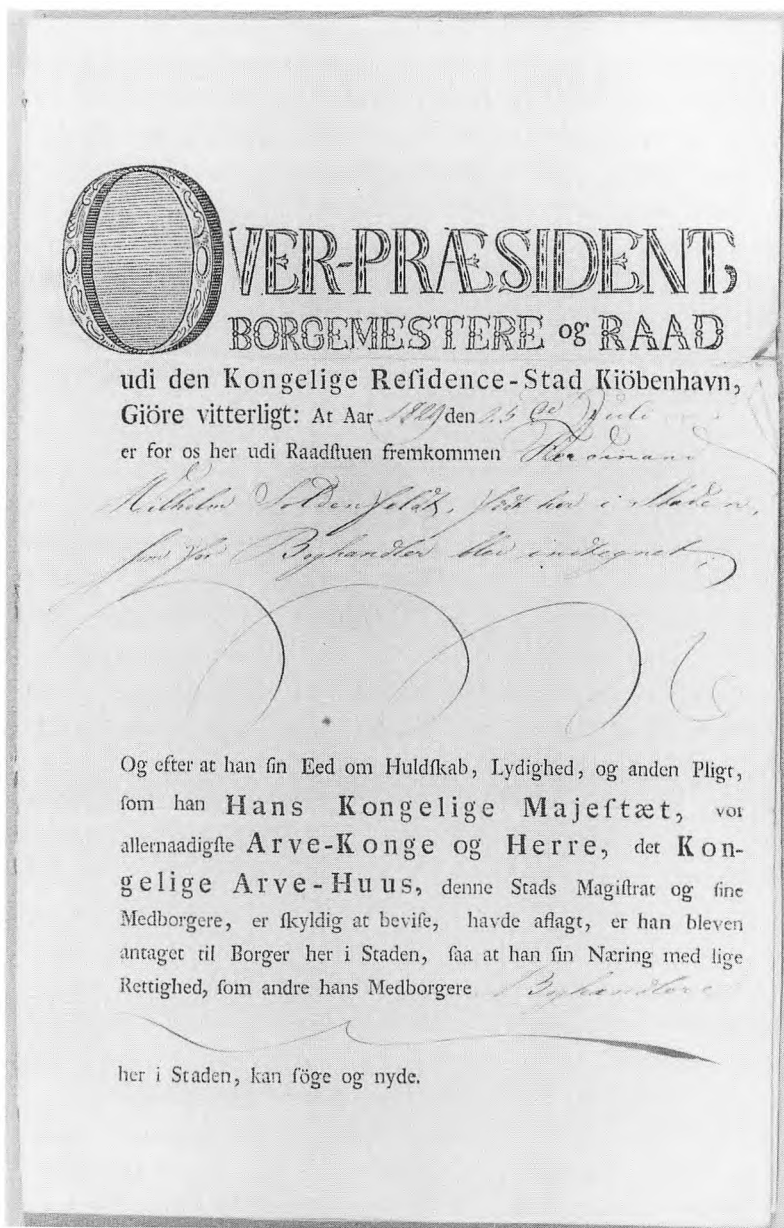 OVER-PRÆSIDENT,
BORGEMESTERE og RAAD
udi den Kongelige Reſidence-Stad Kiöbenhavn,
Giöre vitterligt: At Aar 1829 den 15de Juli
er for os her udi Raadſtuen fremkommen Ferdinand
Wilhelm Soldenfeldt, født her i Staden,
som for Boghandler blev indtegnet,
Og efter at han ſin Eed om Huldſkab, Lydighed, og anden Pligt,
ſom han Hans Kongelige Majeſtæt, vor
allernaadigſte Arve-Konge og Herre, det Kon-
gelige Arve-Huus, denne Stads Magiſtrat og ſine
Medborgere, er ſkyldig at beviſe, havde aflagt, er han bleven
antaget til Borger her i Staden, ſaa at han ſin Næring med lige
Rettighed, ſom andre hans Medborgere Boghandlere
her i Staden, kan ſöge og nyde.